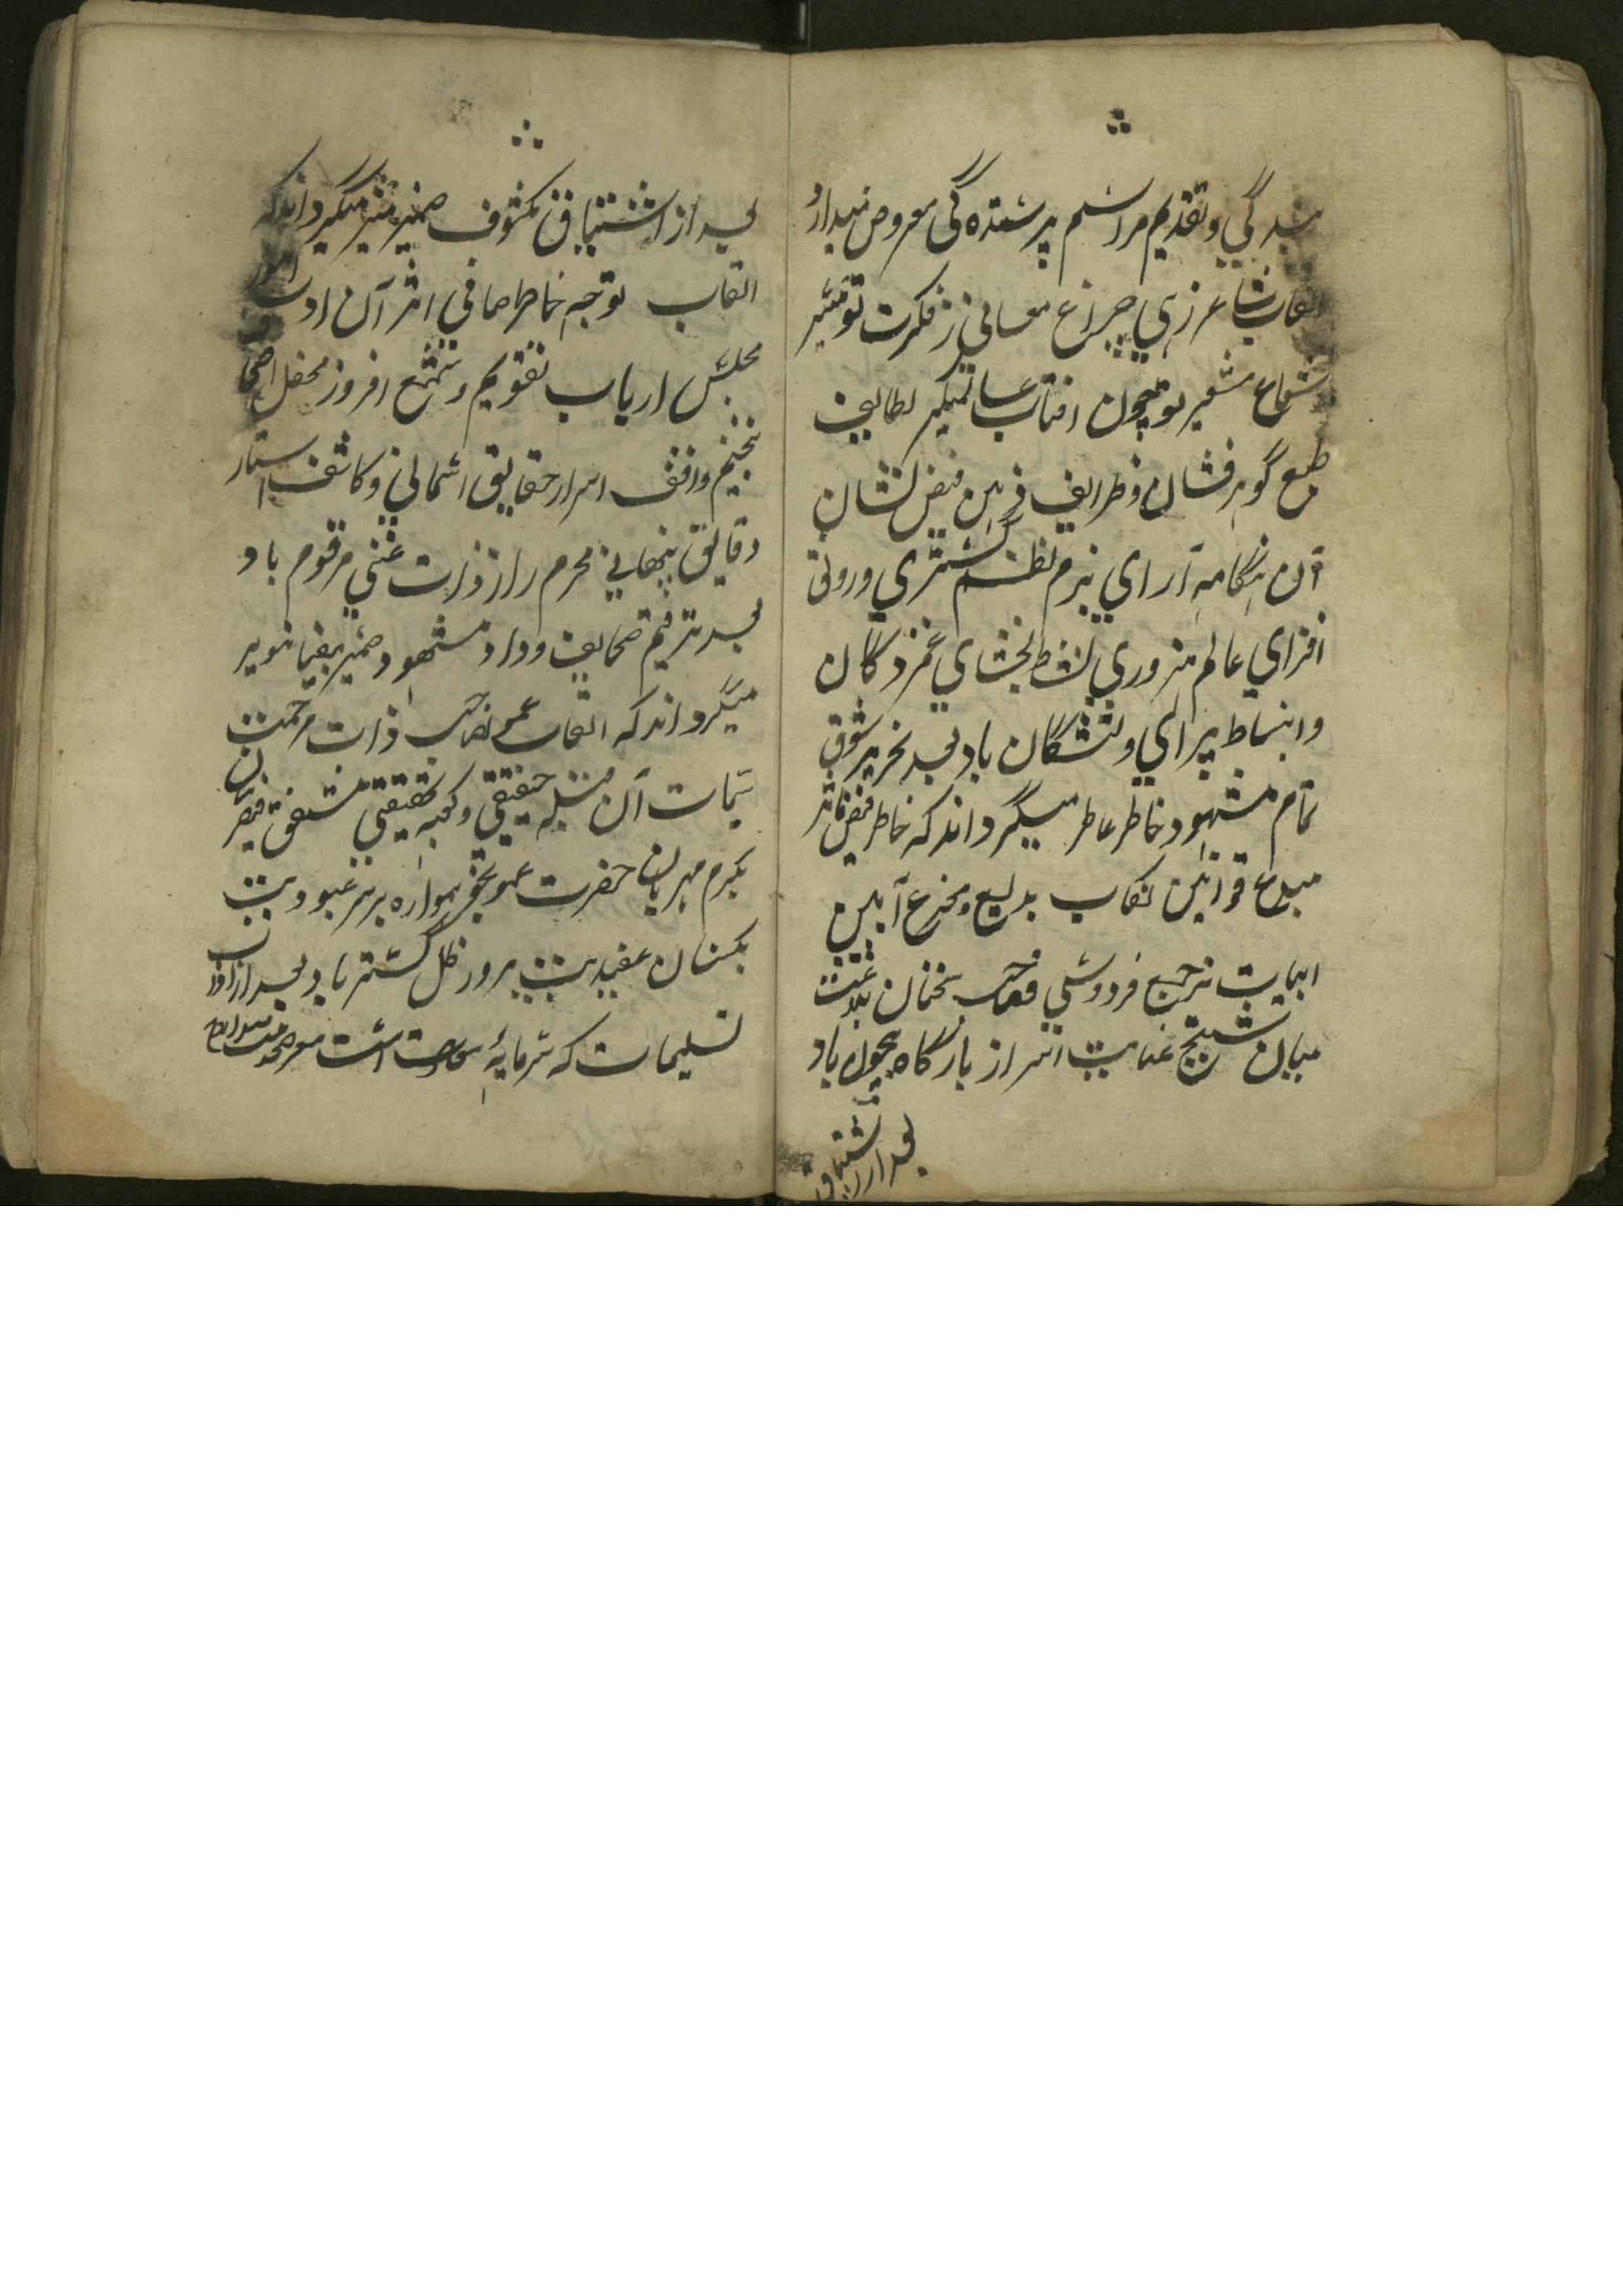 بندگی و تقدیم مراسم پرستده گی معروض میدارد
القاب شاعر زهی چراغ معانی ز فکرت تو منیر
شعاع شعیر تو همچون افتاب عالمگیر لطایف
طبع گوهرفشان و ظرایف ذهن فیض نشان
آن هنگامه آرای بزم نظم گستری و رونق
افزای عالم هنروری نشاط بخشای غمزدگان
و انبساط پیرای دلتنگان باد بعد تحریر شوق
تمام مشهود خاطر عاطر میگرداند که خاطر فیض ماثر
مبدع قوانین نکاب بدیع و مخترع آیین
ابیات ترجیع فردوسی فصاحت سخنان بلاغت
مبانی عنایت اسرار بارگاه بیچون باد
بعد از اشتیاق
بعد از اشتیاق مکشوف ضمیر منیر میگرداند که
القاب توجه خاطر صافی اثر آن ادیب امور
مجلس ارباب تقویم و شمع افروز محفل اصحاب
تنجیم واقف اسرار حقایق اسمانی و کاشف استار
دقایق پنهانی محرم راز ذرات غنی مرقوم باد
بعد ترقیم صحایف وداد مشهود ضمیر بیضا تنویر
میگرداند که القاب عمو صاحب ذات مرحمت
سمات آن قبله حقیقی و کعبه تحقیقی مشفق فیض رسان
مکرم مهربان حضرت عمو بحق همواره بر سر عبودیت
مکسان عقیدت پرور ظل گستر باد بعد از اداب
تسلیمات که سرمایه سعادت است معروض